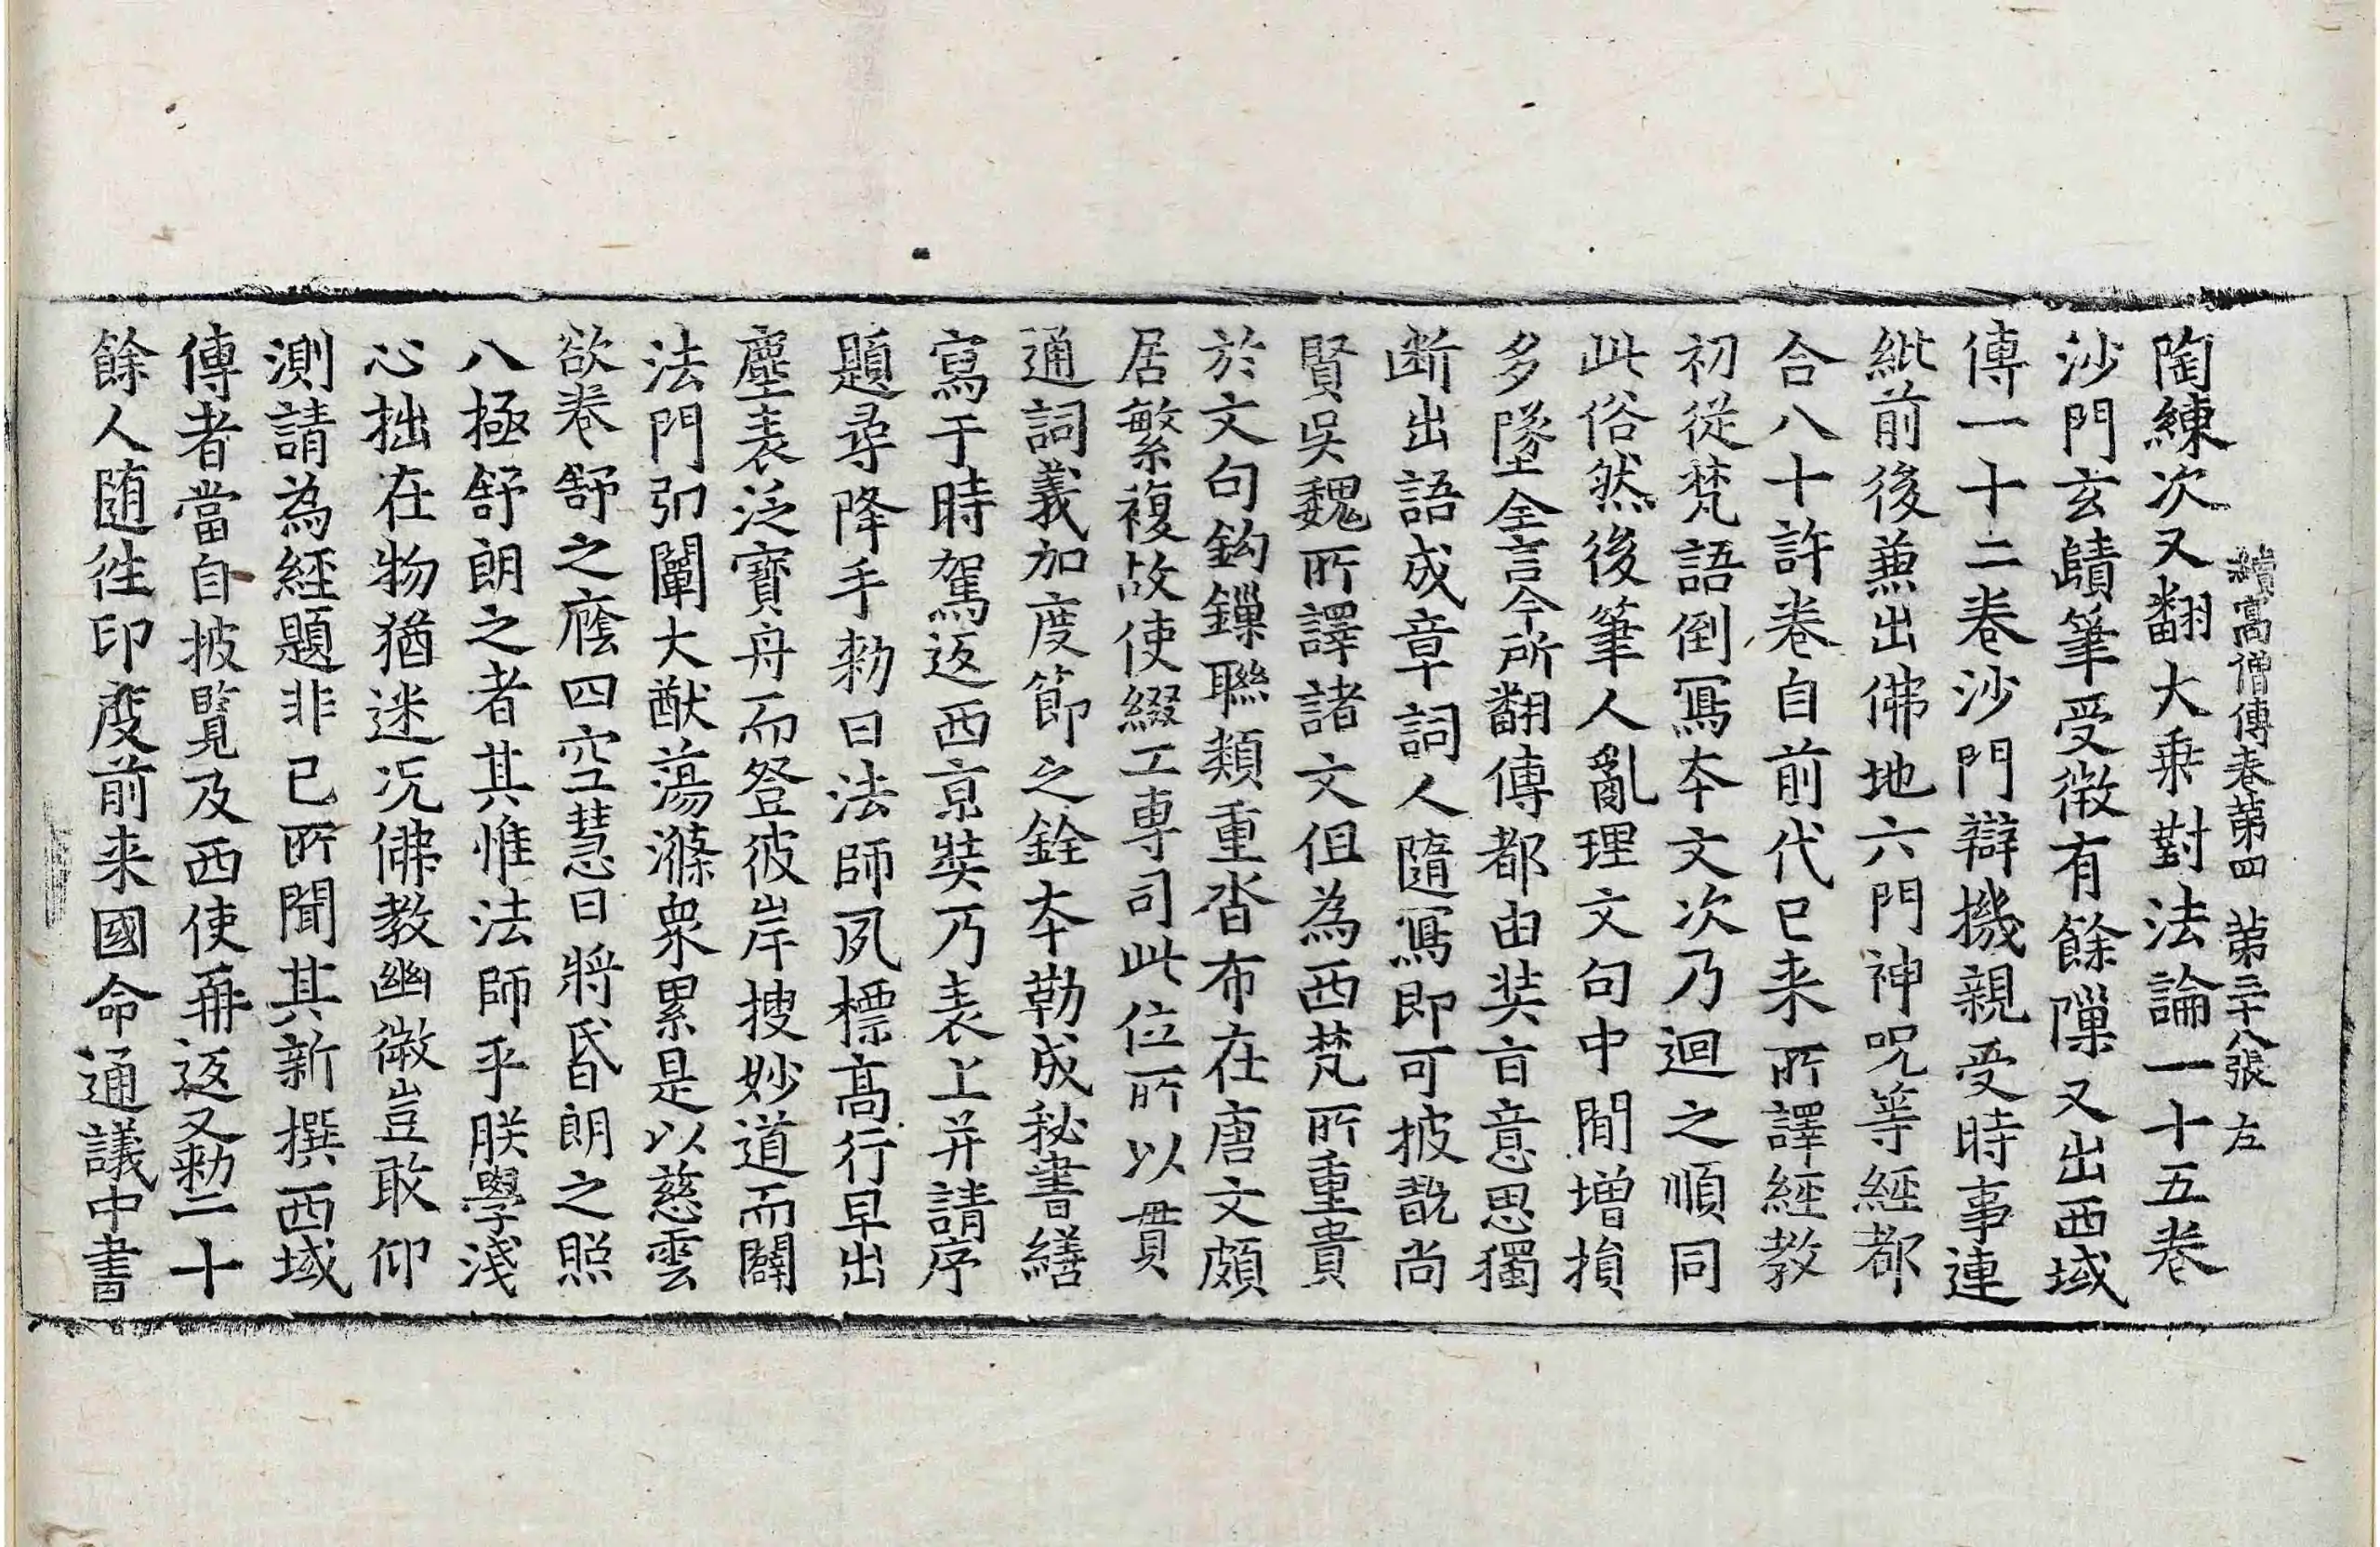 續高僧傳卷第四 第三十八張 左
陶練次又翻大乗對法論一十五卷
沙門玄賾筆受微有餘隟又出西域
傳一十二卷沙門辯機親受時事連
紕前後兼出佛地六門神呪等經都
合八十許卷自前代已来所譯經教
初從梵語倒寫本文次乃迴之順同
此俗然後筆人亂理文句中間增損
多墜全言今所翻傳都由奘盲意思獨
断出語成章詞人隨寫即可披翫尚
賢吳魏所譯諸文但為西梵所重貴
於文句鈎鏁聯類重沓布在唐文頗
居繁複故使綴工専司此位所以貫
通詞義加度節之銓本勒成秘書繕
寫于時駕返西京奘乃表上并請序
題尋降手勑曰法師夙標髙行早出
塵表泛寶舟而登彼岸搜妙道而闢
法門弘闡大猷蕩滌衆累是以慈雲
欲卷舒之廕四空慧日將昏朗之照
八極舒朗之者其惟法師乎朕學淺
心拙在物猶迷况佛教幽微豈敢仰
測請為經題非已所聞其新撰西域
傳者當自披覧及西使再返又勑二十
餘人随往印度前来國命通議中書